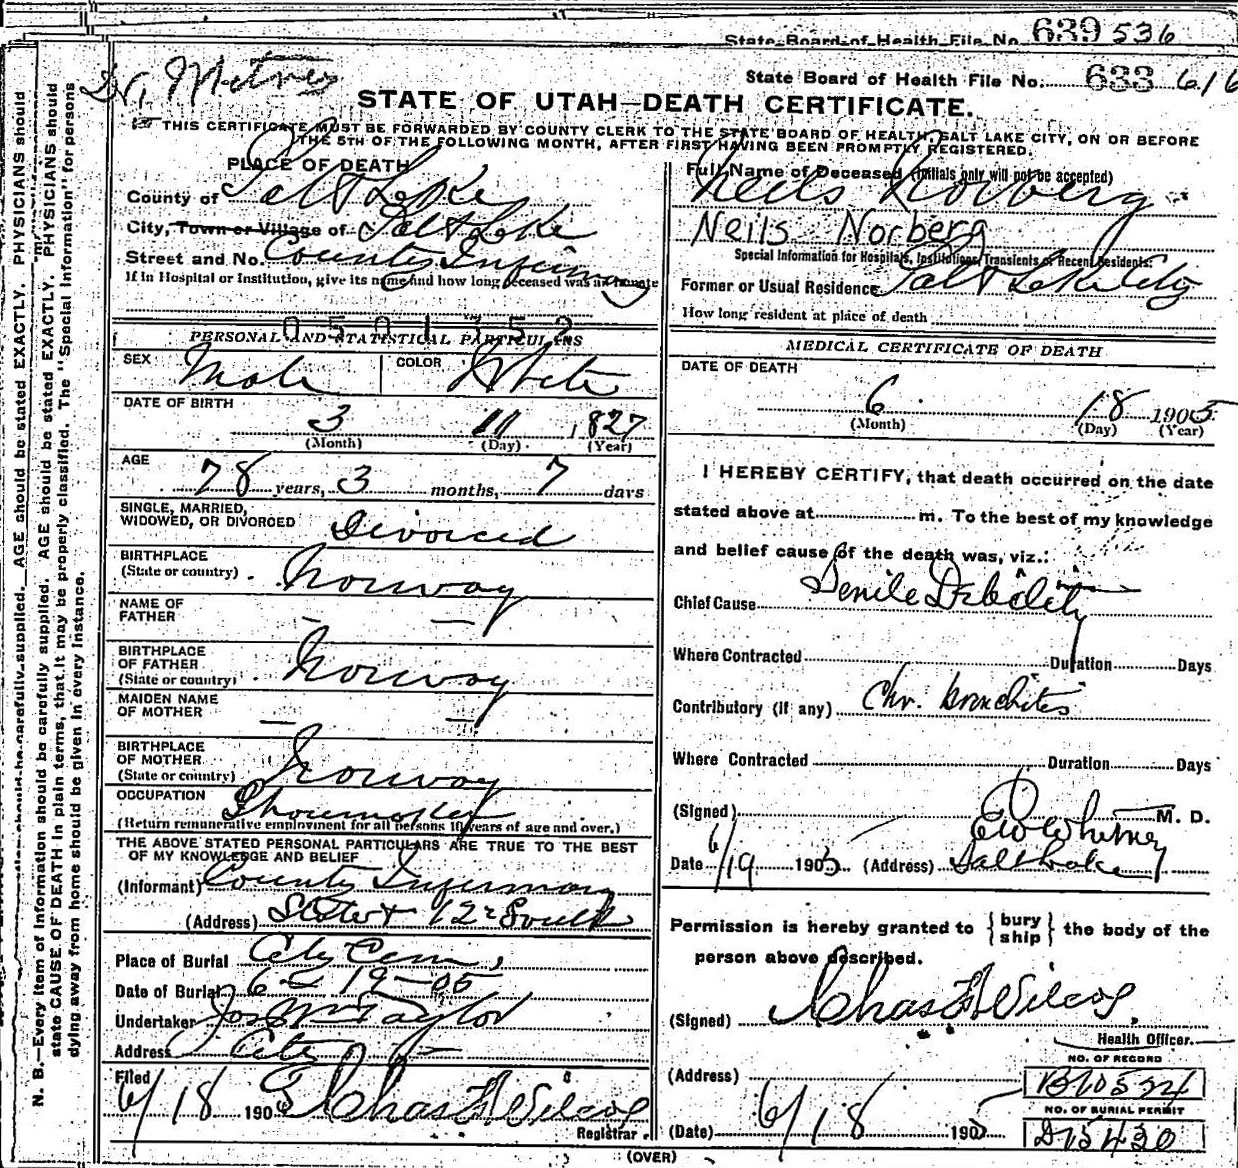 State Board of Health File No. 639 536
State Board of Health File No. 633 616
STATE OF UTAH—DEATH CERTIFICATE.
THIS CERTIFICATE MUST BE FORWARDED BY COUNTY CLERK TO THE STATE BOARD OF HEALTH, SALT LAKE CITY, ON OR BEFORE
THE 5TH OF THE FOLLOWING MONTH, AFTER FIRST HAVING BEEN PROMPTLY REGISTERED.
PLACE OF DEATH
County of Salt Lake
City, Town or Village of Salt Lake
Street and No. County Infirmary
If in Hospital or Institution, give its name and how long deceased was an inmate
0501352
PERSONAL AND STATISTICAL PARTICULARS
SEX Male COLOR White
DATE OF BIRTH
3 11 1827
(Month) (Day) (Year)
AGE
78 years, 3 months, 7 days
SINGLE, MARRIED,
WIDOWED, OR DIVORCED Divorced
BIRTHPLACE
(State or country) Norway
NAME OF
FATHER — —
BIRTHPLACE
OF FATHER
(State or country) Norway
MAIDEN NAME
OF MOTHER — —
BIRTHPLACE
OF MOTHER
(State or country) Norway
OCCUPATION Shoemaker
(Return remunerative employment for all persons 10 years of age and over.)
THE ABOVE STATED PERSONAL PARTICULARS ARE TRUE TO THE BEST
OF MY KNOWLEDGE AND BELIEF
(Informant) County Infirmary
(Address) State & 12th South
Place of Burial City Cem,
Date of Burial 6 - 19 - 05
Undertaker Jos Wm Taylor
Address City
Filed
6/18 1905 Chas F Wilcox
Registrar.
Full Name of Deceased (Initials only will not be accepted)
Neils Norberg
Neils Norberg
Special Information for Hospitals, Institutions, Transients or Recent Residents.
Former or Usual Residence Salt Lake City
How long resident at place of death
MEDICAL CERTIFICATE OF DEATH
DATE OF DEATH
6 18 1905
(Month) (Day) (Year)
I HEREBY CERTIFY, that death occurred on the date
stated above at m. To the best of my knowledge
and belief cause of the death was, viz.:
Chief Cause Senile Debility
Where Contracted Duration Days
Contributory (if any) Chr. bronchitis
Where Contracted Duration Days
(Signed) EW Whitney M. D.
Date 6/19 1905 (Address) Salt Lake
Permission is hereby granted to { bury ship } the body of the
person above described.
(Signed) Chas F Wilcox,
Health Officer.
(Address)
(Date) 6/18 1905
NO. OF RECORD
B10534
NO. OF BURIAL PERMIT
D15430
(OVER)
N. B.—Every item of information should be carefully supplied. AGE should be stated EXACTLY. PHYSICIANS should
state CAUSE OF DEATH in plain terms, that it may be properly classified. The "Special Information" for persons
dying away from home should be given in every instance.